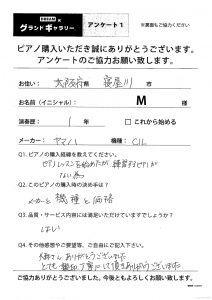 グランドギャラリー アンケート1 ※裏面もご協力ください
ピアノ購入いただき誠にありがとうございます。
アンケートのご協力お願い致します。
お住い: 大阪府県 寝屋川 市
お名前(イニシャル): M 様
演奏歴: 1 年 □これから始める
メーカー: ヤマハ 機種: C1L
Q1. ピアノの購入経緯を教えてください。
ピアノレッスンを始めたが、練習するピアノが
ない為
Q2. このピアノの購入時の決め手は?
メーカーと機種と価格
Q3. 品質・サービス内容には満足いただけていますでしょうか?
はい
Q4. その他感想やご要望等、ご自由にご記入下さい。
ありがとうございました
とても親切丁寧にして頂きありがとうございました
ご協力ありがとうございました。今後ともよろしくお願い致します。